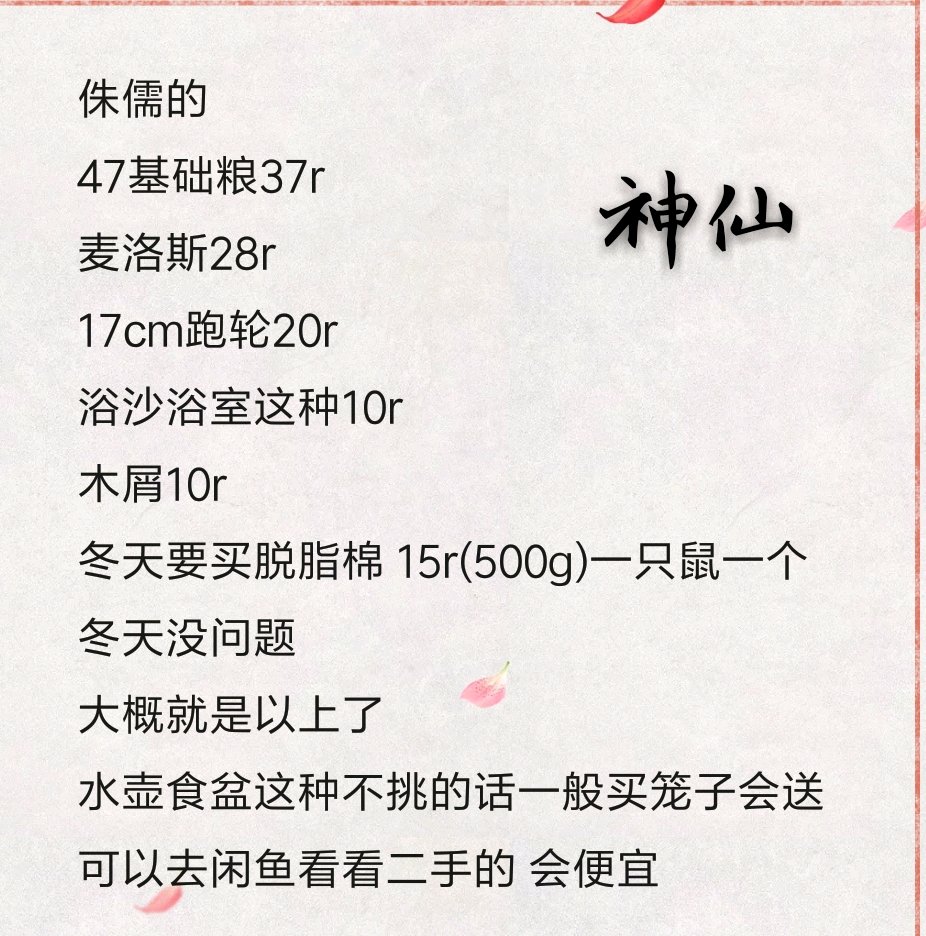 侏儒的
47基础粮37r
神仙
麦洛斯28r
17cm跑轮20r
浴沙浴室这种10r
木屑10r
冬天要买脱脂棉 15r(500g)一只鼠一个
冬天没问题
大概就是以上了
水壶食盆这种不挑的话一般买笼子会送
可以去闲鱼看看二手的 会便宜